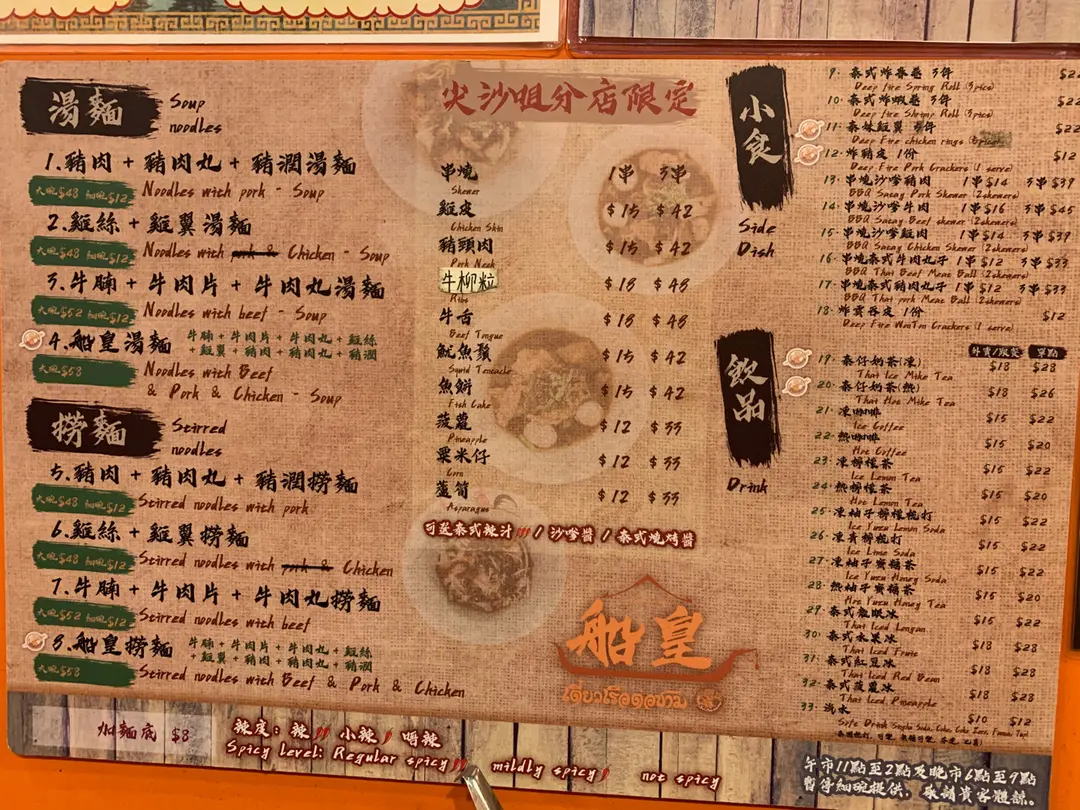 湯麵 Soup noodles
1.豬肉 + 豬肉丸 + 豬潤湯麵
大風$48 細風$12 Noodles with pork - Soup
2.雞絲 + 雞翼湯麵
$48 $12 Noodles with pork & Chicken - Soup
3.牛腩 + 牛肉片 + 牛肉丸湯麵
$52 $12 Noodles with beef - Soup
4.船皇湯麵 牛腩 + 牛肉片 + 牛肉丸 + 雞絲
+ 雞翼 + 豬肉 + 豬肉丸 + 豬潤
$58 Noodles with Beef
& Pork & Chicken - Soup
撈麵 Stirred noodles
5.豬肉 + 豬肉丸 + 豬潤撈麵
$48 $12 Stirred noodles with pork
6.雞絲 + 雞翼撈麵
$48 $12 Stirred noodles with pork & Chicken
7.牛腩 + 牛肉片 + 牛肉丸撈麵
$52 $12 Stirred noodles with beef
8.船皇撈麵 牛腩 + 牛肉片 + 牛肉丸 + 雞絲
+ 雞翼 + 豬肉 + 豬肉丸 + 豬潤
$58 Stirred noodles with Beef & Pork & Chicken
加麵底 $8
辣度: 辣 小辣 唔辣
Spicy level: Regular spicy mildly spicy not spicy
尖沙咀分店限定
串燒 1串 3串
Skewer
雞皮 $15 $42
Chicken Skin
豬頸肉 $15 $42
Pork Neck
牛柳粒 $18 $48
Ribs
牛舌 $18 $48
Beef Tongue
魷魚鬚 $15 $42
Squid Tentacle
魚餅 $15 $42
Fish Cake
菠蘿 $12 $33
Pineapple
粟米仔 $12 $33
Corn
蘆筍 $12 $33
Asparagus
可選泰式辣汁 / 沙嗲醬 / 泰式燒烤醬
船皇
เตี๋ยวเรือ
小食
Side Dish
9. 泰式炸春卷 3件
Deep fire Spring Roll (3pics)
10. 泰式炸蝦卷 3件 $22
Deep fire Shrimp Roll (3pics)
11. 泰妹雞翼 件 $22
Deep Fire chicken rings
12. 炸豬皮 1份 $12
Deep Fire Pork Crackers (1 serve)
13. 串燒沙嗲豬肉 1串$14 3串$39
BBQ Satay Pork Skewer (2skewers)
14. 串燒沙嗲牛肉 1串$16 3串$45
BBQ Satay Beef skewer (2skewers)
15. 串燒沙嗲雞肉 1串$14 3串$39
BBQ Satay Chicken Skewer (2skewers)
16. 串燒泰式牛肉丸子 1串$12 3串$33
BBQ Thai Beef Meat Ball (2skewers)
17. 串燒泰式豬肉丸子 1串$12 3串$33
BBQ Thai pork Meat Ball (2skewers)
18. 炸雲吞皮 1份 $12
Deep Fire WonTon Crackers (1 serve)
飲品
Drink
單點
19. 泰仔奶茶(凍) $18 $28
Thai Ice Milk Tea
20. 泰仔奶茶(熱) $18 $26
Thai Hot Milk Tea
21. 凍咖啡 $15 $22
Ice Coffee
22. 熱咖啡 $15 $20
Hot Coffee
23. 凍檸檬茶 $15 $22
Ice Lemon Tea
24. 熱檸檬茶 $15 $20
Hot Lemon Tea
25. 凍柚子檸檬梳打 $15 $22
Ice Yuzu Lemon Soda
26. 凍青檸梳打 $15 $22
Ice Lime Soda
27. 凍柚子蜜糖茶 $15 $22
Ice Yuzu Honey Soda
28. 熱柚子蜜糖茶 $15 $20
Hot Yuzu Honey Tea
29. 泰式龍眼冰 $15 $22
Thai Iced Longan
30. 泰式水果冰 $18 $28
Thai Iced Fruit
31. 泰式紅豆冰 $18 $28
Thai Iced Red Bean
32. 泰式菠蘿冰 $18 $28
Thai Iced Pineapple
33. 汽水 $10 $12
午市11點至2點及晚市6點至9點
暫停細碗提供, 敬請貴客體諒。